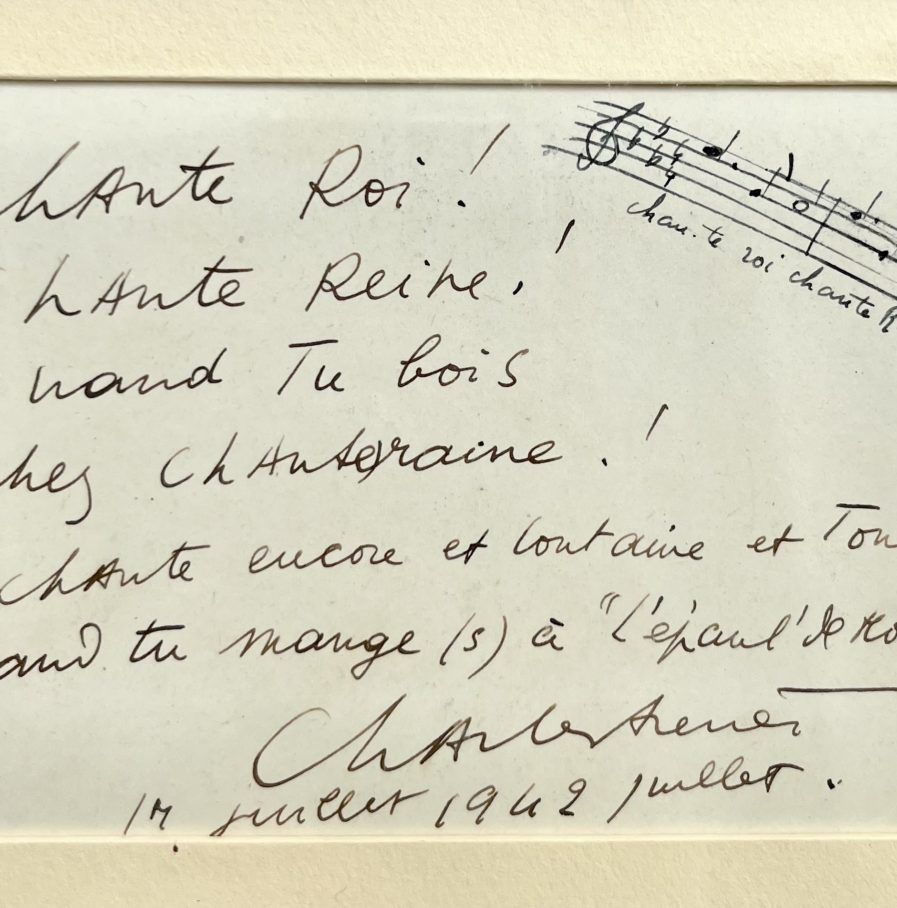 hante Roi !
hante Reine !
uand Tu bois
hez Chanteraine . !
chante encore et lontaine et Ton
and tu mange (s) à "l'épaul' de Mo
Charles Trenet
17 juillet 1942 juillet .
chan-te roi chante R